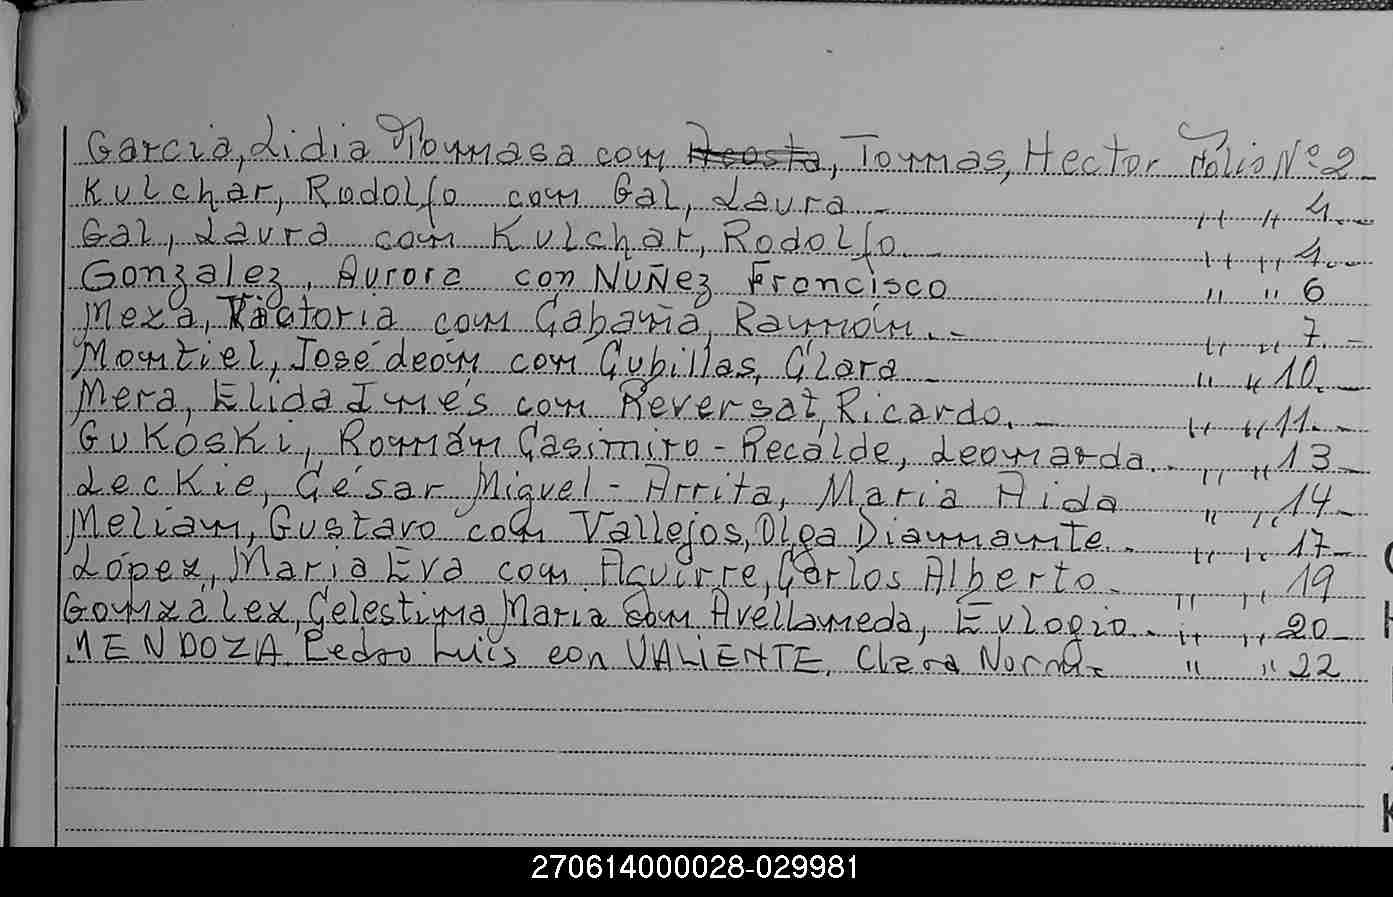 Garcia, Lidia Tomasa con Acosta, Tomas, Hector Folio Nº 2
Kulchar, Rodolfo con Gal, Laura - " " 4.--
Gal, Laura con Kulchar, Rodolfo. " " 4.--
Gonzalez, Aurora con NUÑez Francisco " " 6
Meza, Victoria con Cabaña, Ramón. - " " 7. -
Montiel, José León con Cubillas, Clara - " " 10. -
Mera, Elida Inés con Reversat, Ricardo. - " " 11. -
Gukoski, Román Casimiro - Recalde, Leonarda. - " " 13 -
Leckie, César Miguel - Arrita, Maria Aida " " 14 -
Meliam, Gustavo con Vallejos, Olga Diamante. - " " 17 -
López, Maria Eva con Aguirre, Carlos Alberto - " " 19
González, Celestina Maria con Avellaneda, Eulogio. - " " 20 -
MENDOZA Pedro Luis con VALIENTE, Clara Norma - " " 22
270614000028-029981